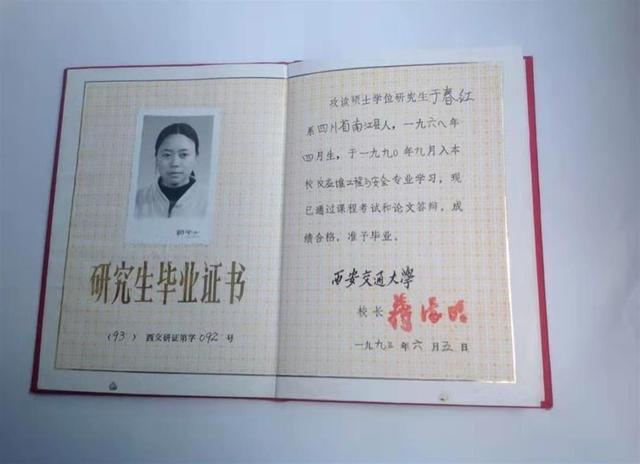 研究生毕业证书
（93）西交研证第字092号
攻读硕士学位研究生于春红
系四川省南江县人，一九六八年
四月生，于一九九〇年九月入本
校反应堆工程与安全专业学习，现
已通过课程考试和论文答辩，成
绩合格，准予毕业。
西安交通大学
校长 蒋德明
一九九三年六月五日